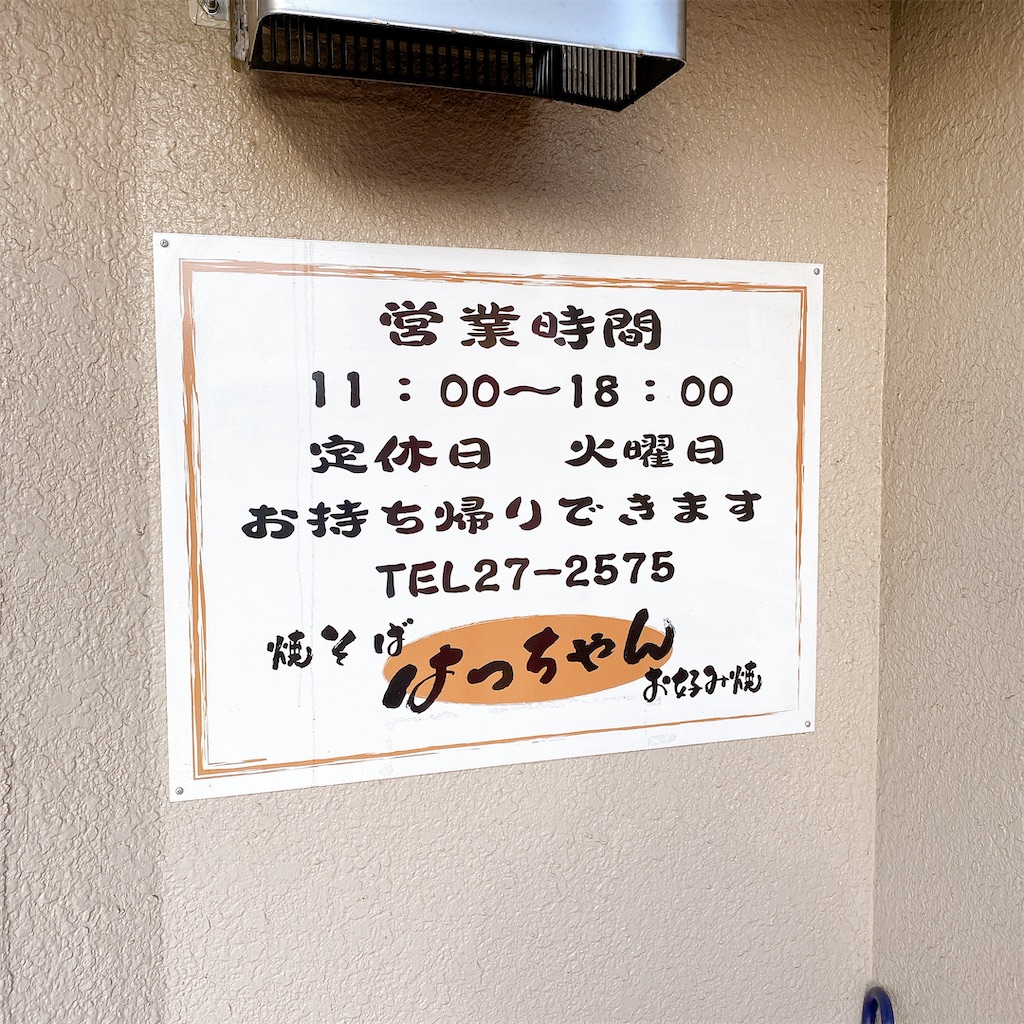 営業時間
11：00〜18：00
定休日　火曜日
お持ち帰りできます
TEL27-2575
焼そば はっちゃん お好み焼